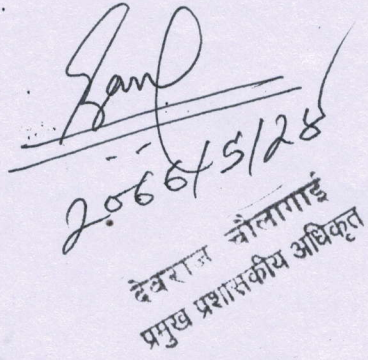 2066/5/28
देवराज चौलागाई
प्रमुख प्रशासकीय अधिकृत